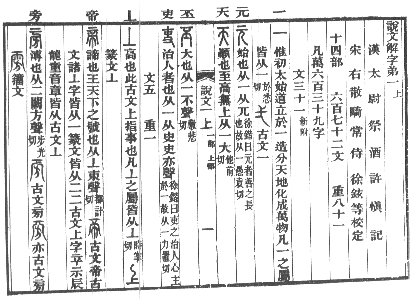 說文解字弟一上
漢太尉祭酒許慎記
宋右散騎常侍徐鉉等校定
十四部 六百七十二文 重八十一
凡萬六百三十九字
文三十一新附
一惟初太始道立於一造分天地化成萬物凡一之屬
皆从一於悉切弌古文一
元始也从一从兀徐鍇曰元者善之長也故从一愚袁切
天顚也至高無上从一大他前切
說文一上 一部 上部 一
丕大也从一不聲敷悲切
吏治人者也从一从史史亦聲徐鍇曰吏之治人心主於一故从一力置切
文五 重一
丄高也此古文上指事也凡丄之屬皆从丄時掌切
篆文丄
帝諦也王天下之號也从丄朿聲都計切古文帝古
文諸丄字皆从一篆文皆从二二古文上字䇂示辰
龍童音章皆从古文丄
旁溥也从二闕方聲步光切古文㫄亦古文㫄
籒文